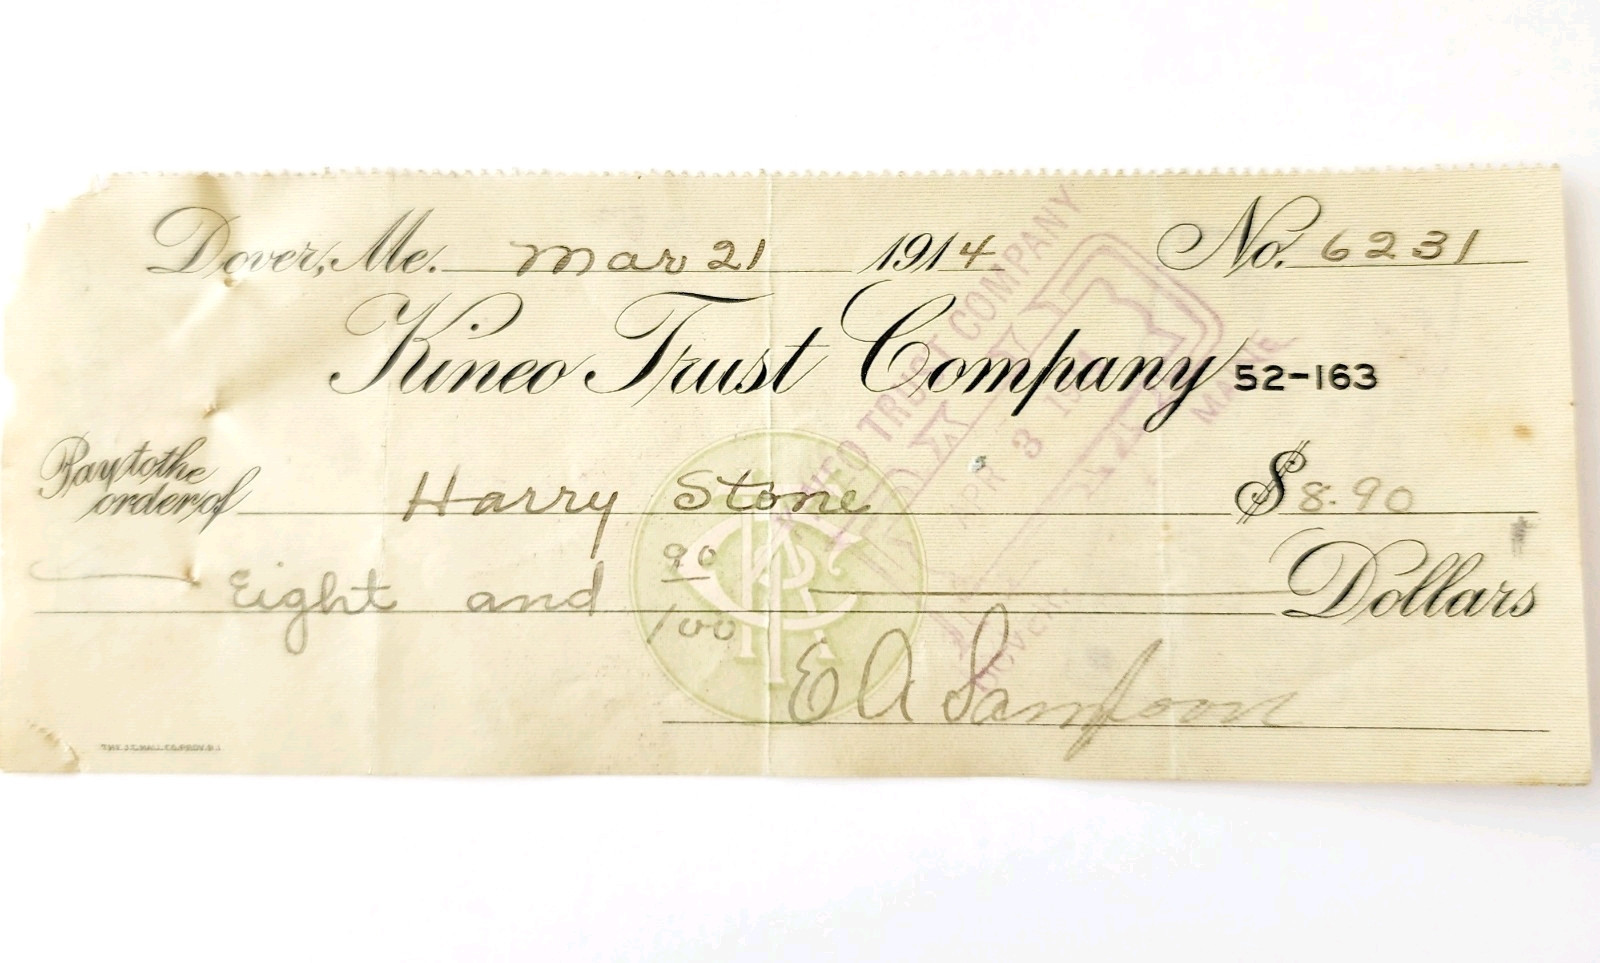 Dover, Me. Mar 21 1914 No. 6231
Kineo Trust Company 52-163
Pay to the order of Harry Stone $8.90
Eight and 90/100 Dollars
E A Sampson
KINEO TRUST COMPANY
PAID
APR 3 1914
DOVER, MAINE
THE J.C. HALL CO. PROV. R.I.